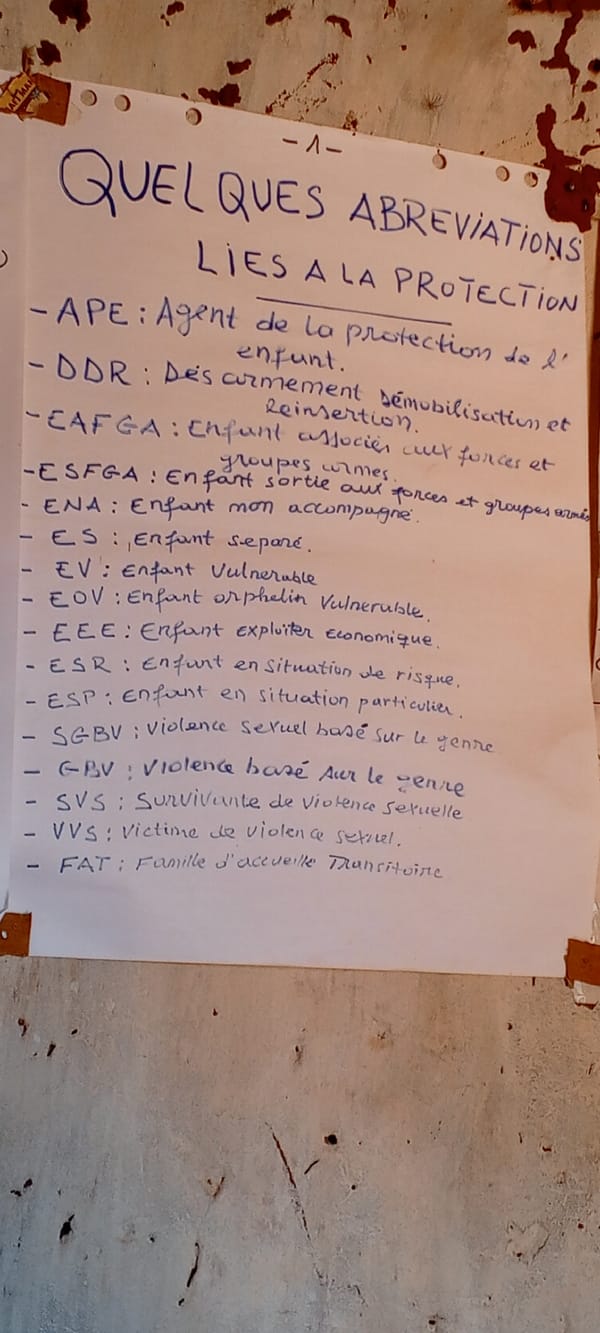 -1-
QUELQUES ABREVIATIONS
LIES A LA PROTECTION
- APE : Agent de la protection de l'
enfant.
- DDR : Désarmement Démobilisation et
Reinsertion.
- EAFGA : Enfant associés aux forces et
groupes armes.
- ESFGA : Enfant sortie aux forces et groupes armés
- ENA : Enfant non accompagné.
- ES : Enfant separé.
- EV : Enfant Vulnerable
- EOV : Enfant orphelin Vulnerable.
- EEE : Enfant exploiter Economique.
- ESR : Enfant en situation de risque.
- ESP : Enfant en situation particulier.
- SGBV : Violence sexuel basé sur le genre
- GBV : Violence basé sur le genre
- SVS : Survivante de violence sexuelle
- VVS : Victime de violence sexuel.
- FAT : Famille d'accueille Transitoire